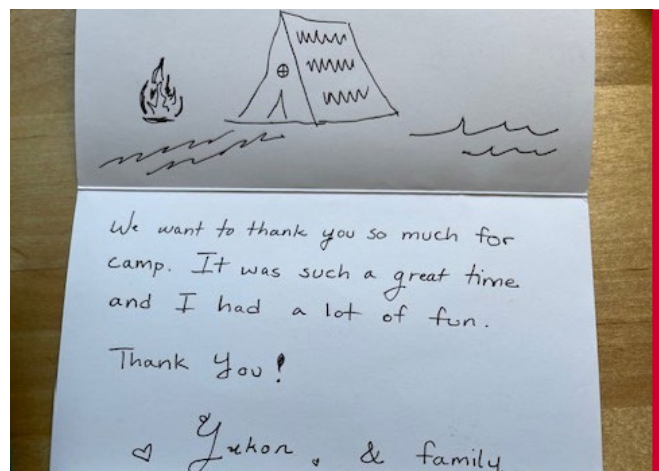 We want to thank you so much for
camp. It was such a great time
and I had a lot of fun.
Thank You!
♡ Yukon, & family